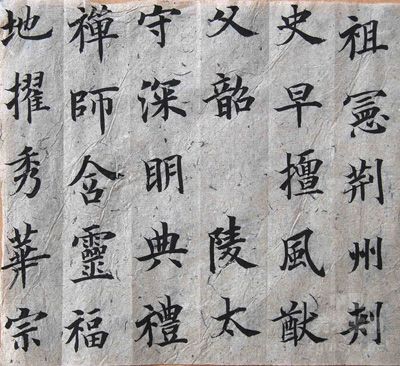 祖憲荆州刺
史早擅風猷
父韶 陵太
守深明典禮
禪師含靈福
地擢秀華宗